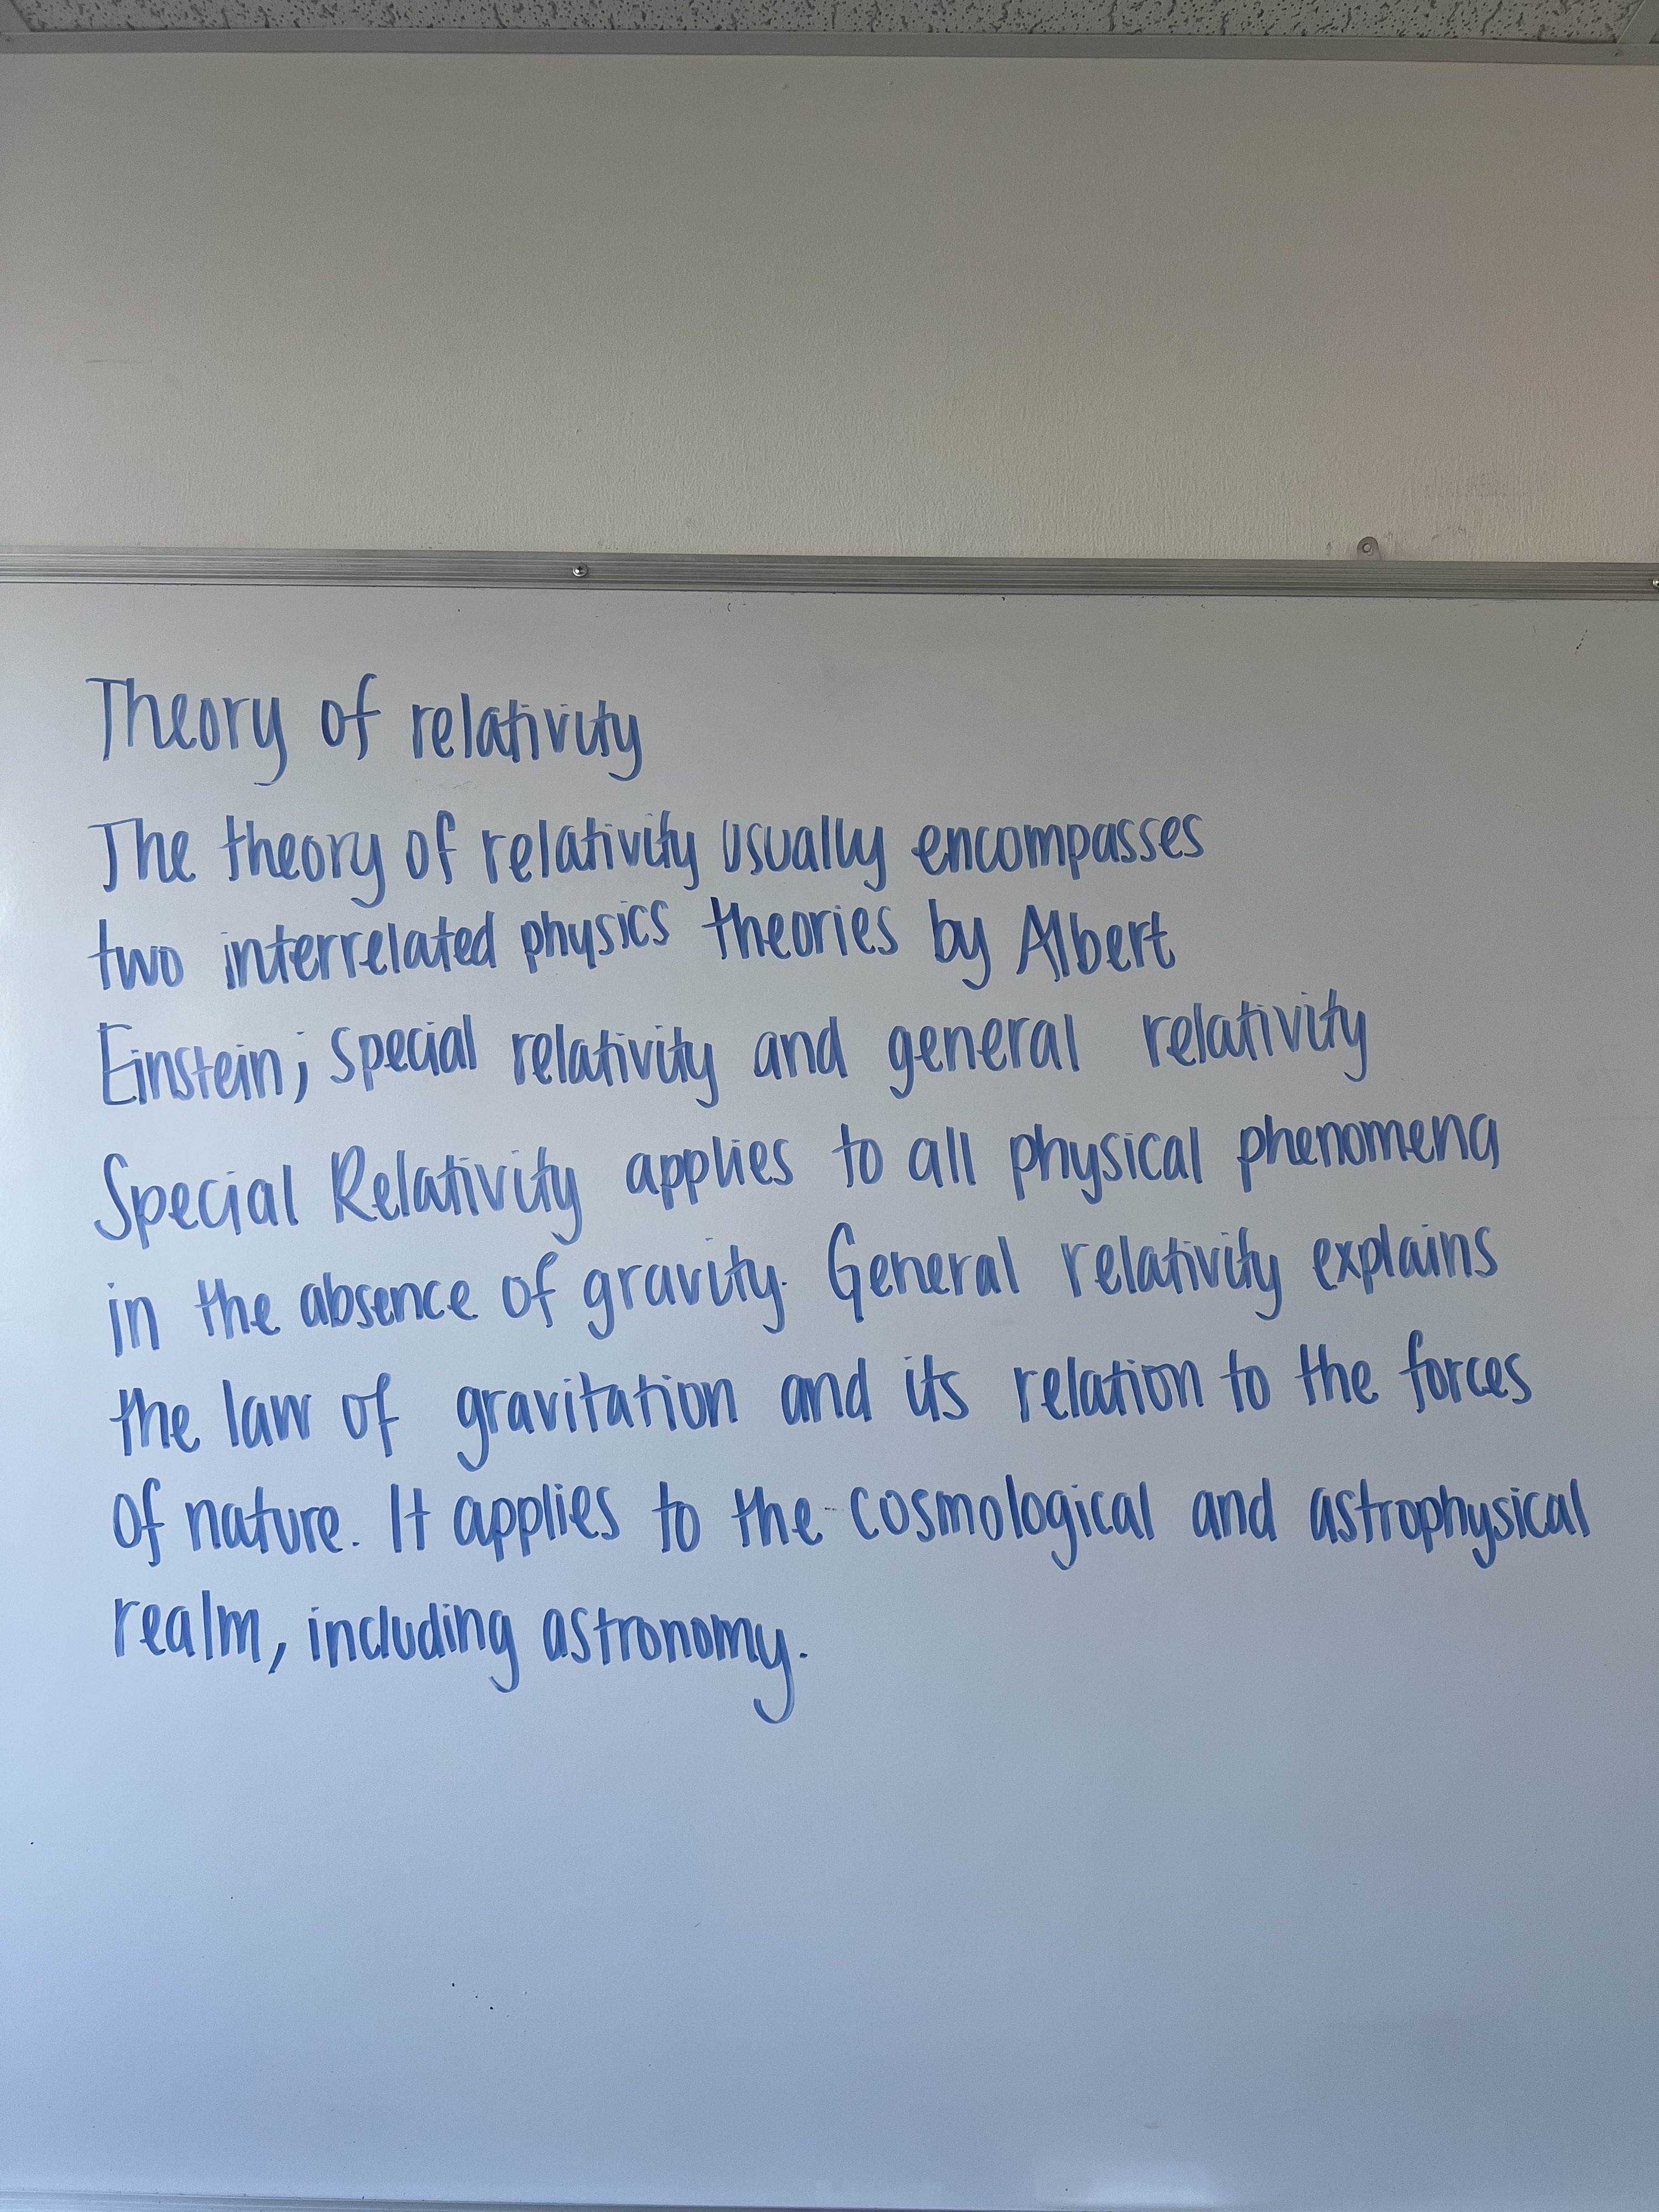 Theory of relativity
The theory of relativity usually encompasses
two interrelated physics theories by Albert
Einstein; special relativity and general relativity
Special Relativity applies to all physical phenomena
in the absence of gravity. General relativity explains
the law of gravitation and its relation to the forces
of nature. It applies to the cosmological and astrophysical
realm, including astronomy.